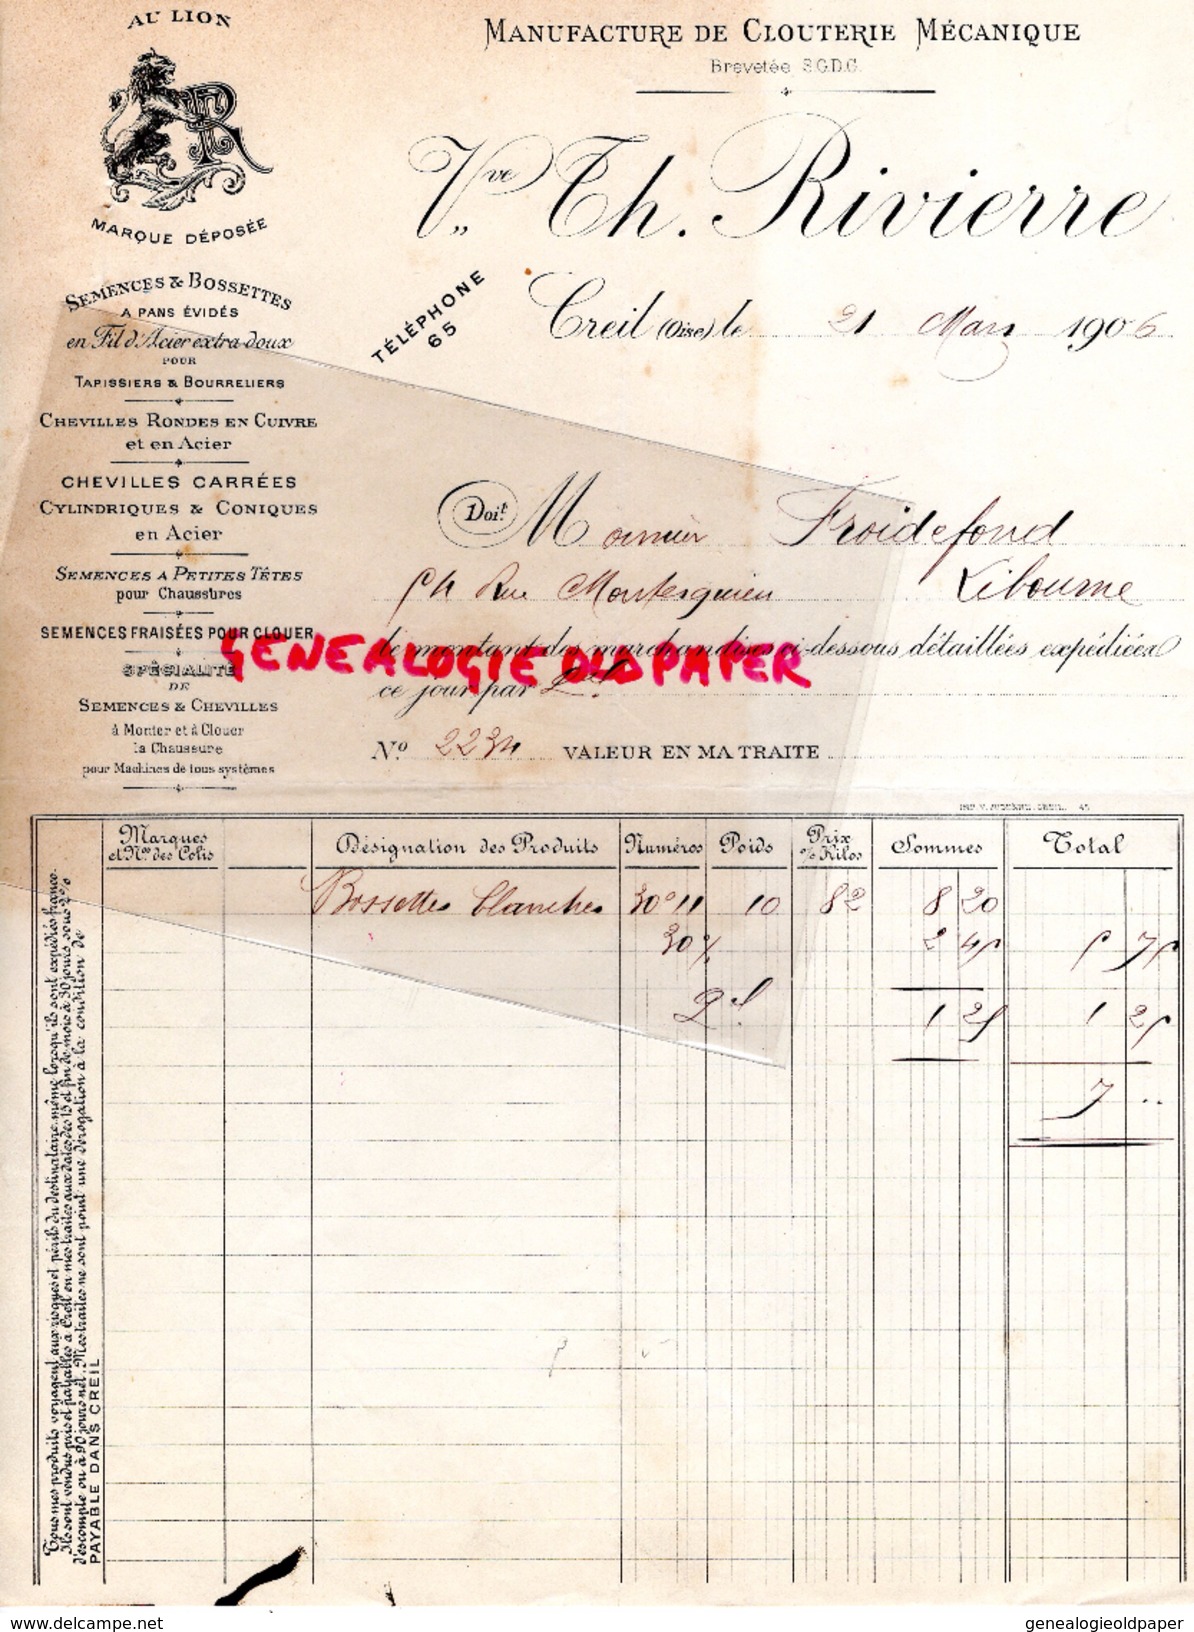 AU LION
R
MARQUE DÉPOSÉE
MANUFACTURE DE CLOUTERIE MÉCANIQUE
Brevetée S.G.D.G.
Vve Th. Rivierre
TÉLÉPHONE
65
Creil (Oise) le 21 Mars 1906
SEMENCES & BOSSETTES
A PANS ÉVIDÉS
en Fil d'Acier extra-doux
POUR
TAPISSIERS & BOURRELIERS
CHEVILLES RONDES EN CUIVRE
et en Acier
CHEVILLES CARRÉES
CYLINDRIQUES & CONIQUES
en Acier
SEMENCES A PETITES TÊTES
pour Chaussures
SEMENCES FRAISÉES POUR CLOUER
SPÉCIALITÉ
DE
SEMENCES & CHEVILLES
à Monter et à Clouer
la Chaussure
pour Machines de tous systèmes
Doit Monsieur Froidefond
54 Rue Montesquieu Libourne
le montant des marchandises ci-dessous détaillées expédiées
ce jour par
GENEALOGIE OLD PAPER
No 2234 VALEUR EN MA TRAITE
Marques et Nos des Colis Désignation des Produits Numéros Poids Prix % Kilos Sommes Total
Bossettes blanches 30° 11 10 82 8 20
30% 2 45 5 75
1 25 1 25
7 ..
Tous mes produits voyagent aux risques et périls du destinataire, même lorsqu'ils sont expédiés franco.
Ils sont vendus pris et payables à Creil en mes traites aux dates des 15 et fin de mois à 30 jours sous 2%
d'escompte ou à 90 jours net. Mes traites ne sont point une dérogation à la condition de
PAYABLE DANS CREIL
www.delcampe.net
genealogieoldpaper